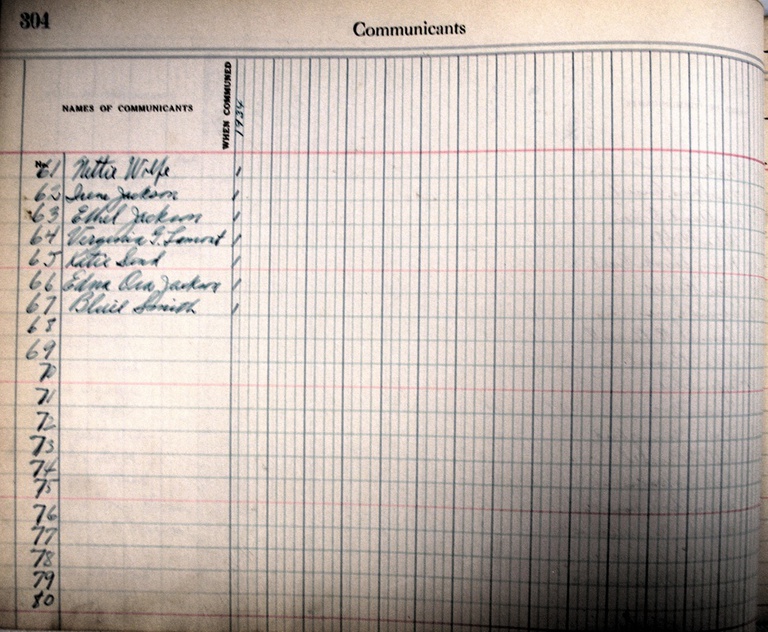 304
Communicants
NAMES OF COMMUNICANTS
WHEN COMMUNED
1934
No.
61 Nettie Wolfe /
62 Irene Jackson /
63 Ethel Jackson /
64 Virginia G. Lamont /
65 Katie /
66 Edna Ora Jackson /
67 Smith /
68
69
70
71
72
73
74
75
76
77
78
79
80